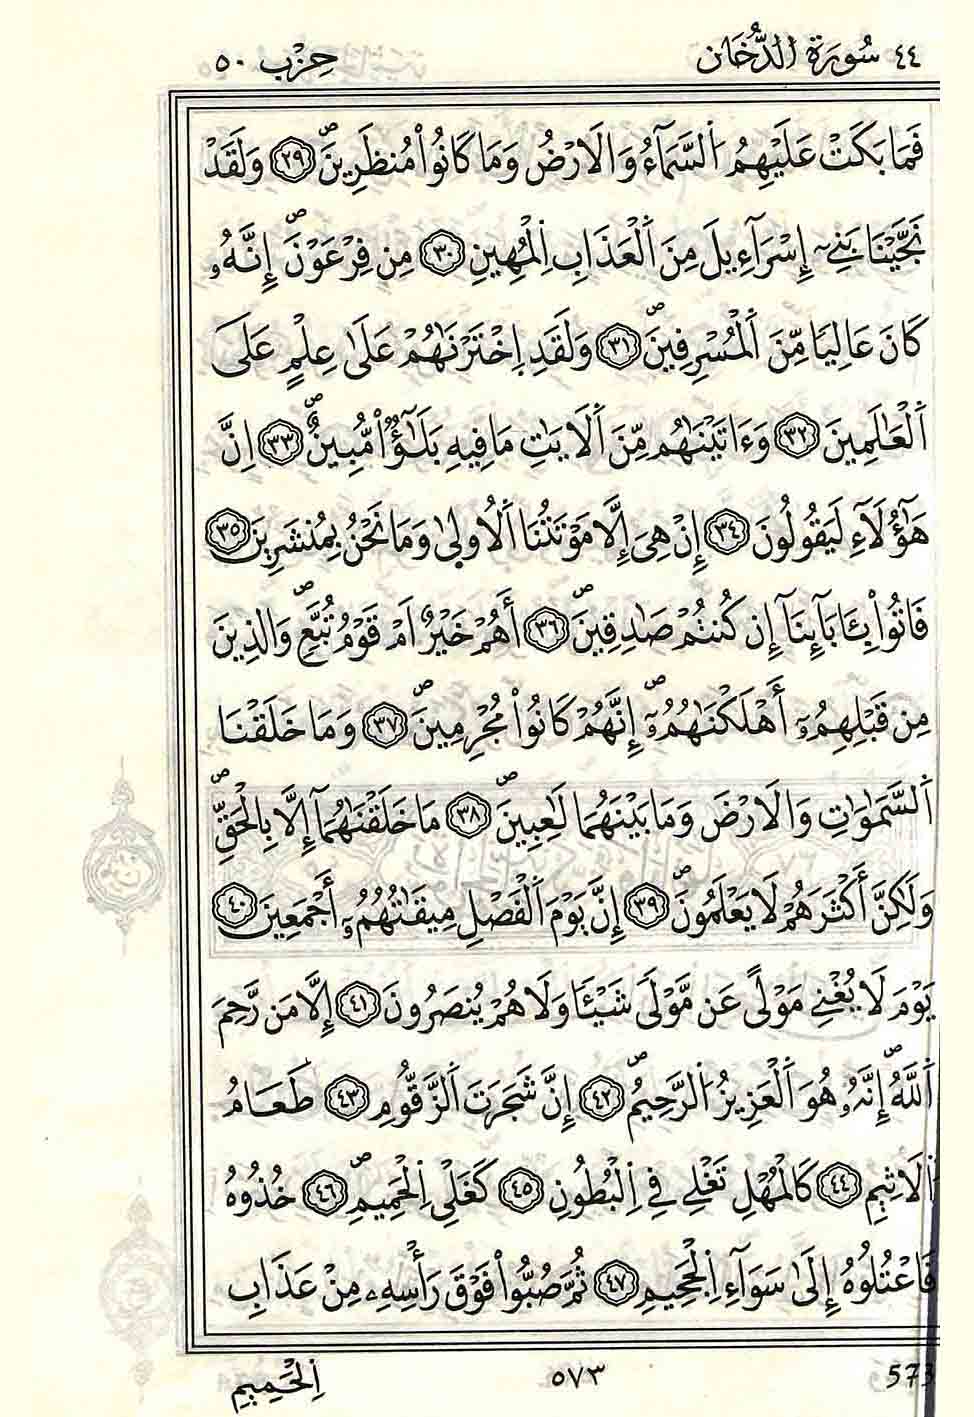 ٤٤ سُورَةُ الدُّخَان حِزْب ٥٠
فَمَا بَكَتْ عَلَيْهِمُ اَلسَّمَآءُ وَالَارْضُ وَمَا كَانُواْ مُنظَرِينَۖ ٢٩ وَلَقَدْ
نَجَّيْنَا بَنِےٓ إِسْرَآءِيلَ مِنَ اَلْعَذَابِ اِلْمُهِينِ ٣٠ مِن فِرْعَوْنَۖ إِنَّهُۥ
كَانَ عَالِيَا مِّنَ اَلْمُسْرِفِينَۖ ٣١ وَلَقَدِ اِخْتَرْنَٰهُمْ عَلَىٰ عِلْمٍ عَلَى
اَلْعَٰلَمِينَ ٣٢ وَءَاتَيْنَٰهُم مِّنَ اَلَايَٰتِ مَا فِيهِ بَلَٰٓؤٌاْ مُّبِينٌۖ ٣٣ اِنَّ
هَٰٓؤُلَآءِ لَيَقُولُونَ ٣٤ إِنْ هِىَ إِلَّا مَوْتَتُنَا اَلُاولىٰ وَمَا نَحْنُ بِمُنشَرِينَ ٣٥
فَاتُواْ بِـَٔابَآئِنَآ إِن كُنتُمْ صَٰدِقِينَۖ ٣٦ أَهُمْ خَيْرٌ اَمْ قَوْمُ تُبَّعٖۖ وَالذِينَ
مِن قَبْلِهِمُۥٓ أَهْلَكْنَٰهُمُۥٓۖ إِنَّهُمْ كَانُواْ مُجْرِمِينَۖ ٣٧ وَمَا خَلَقْنَا
اَلسَّمَٰوَٰتِ وَالَارْضَ وَمَا بَيْنَهُمَا لَٰعِبِينَۖ ٣٨ مَا خَلَقْنَٰهُمَآ إِلَّا بِالْحَقِّۖ
وَلَٰكِنَّ أَكْثَرَهُمْ لَا يَعْلَمُونَۖ ٣٩ إِنَّ يَوْمَ اَلْفَصْلِ مِيقَٰتُهُمُۥٓ أَجْمَعِينَ ٤٠
يَوْمَ لَا يُغْنِے مَوْلىً عَن مَّوْلىَ شَيْـَٔا وَلَا هُمْ يُنصَرُونَ ٤١ إِلَّا مَن رَّحِمَ
اَللَّهُۖ إِنَّهُۥ هُوَ اَلْعَزِيزُ اَلرَّحِيمُۖ ٤٢ إِنَّ شَجَرَتَ اَلزَّقُّومِ ٤٣ طَعَامُ
اَلَاثِيمِ ٤٤ كَالْمُهْلِ تَغْلِے فِے اِلْبُطُونِ ٤٥ كَغَلْىِ اِلْحَمِيمِۖ ٤٦ خُذُوهُ
فَاعْتُلُوهُ إِلَىٰ سَوَآءِ اِلْجَحِيمِ ٤٧ ثُمَّ صُبُّواْ فَوْقَ رَأْسِهِۦ مِنْ عَذَابِ
573 ٥٧٣ اِلْحَمِيمِ